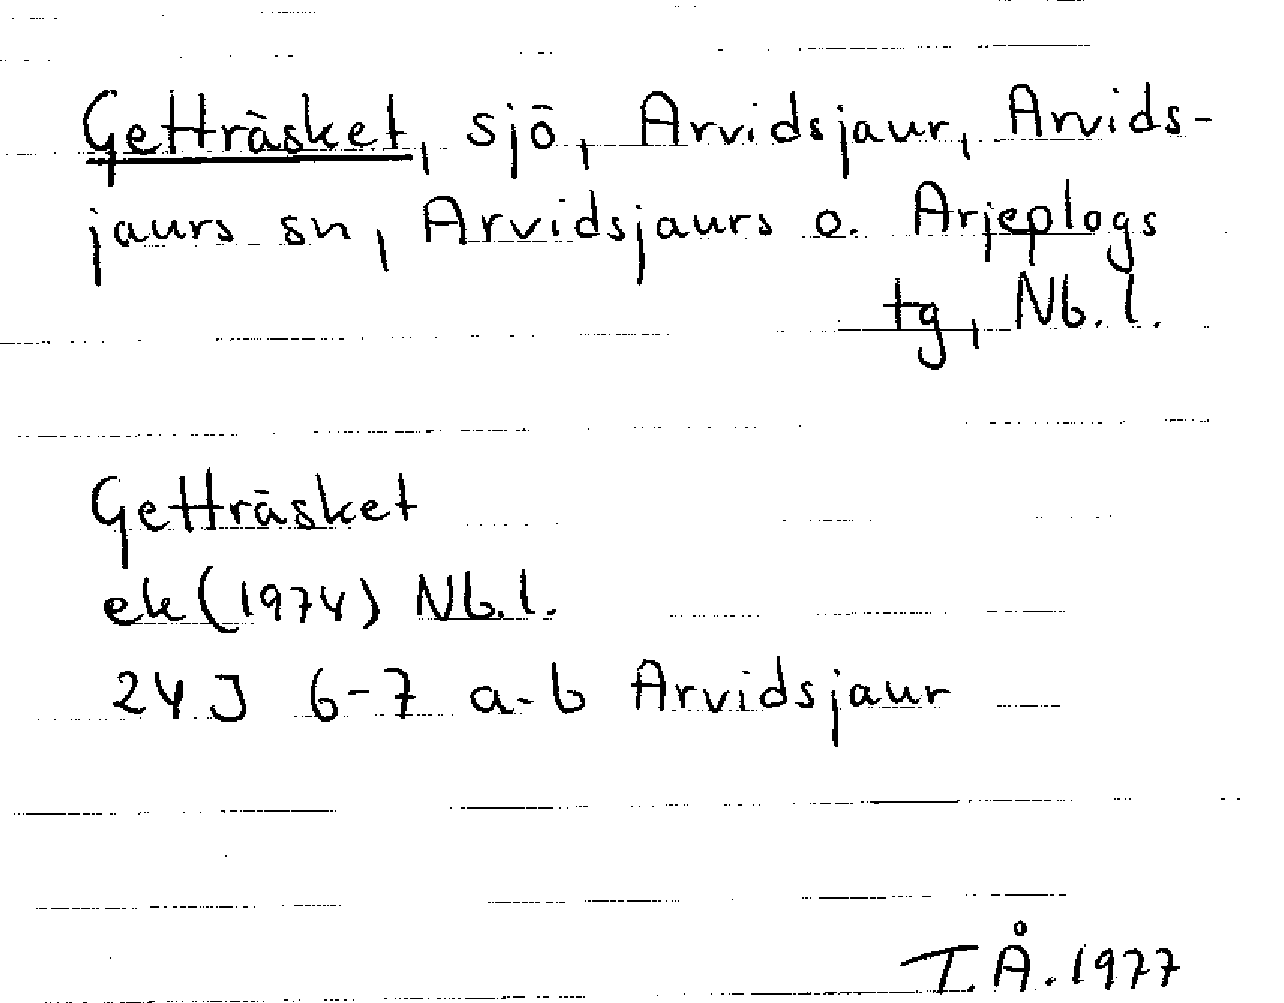 Getträsket, sjö, Arvidsjaur, Arvids-
jaurs sn, Arvidsjaurs o. Arjeplogs
tg, Nb. l.
Getträsket
ek (1974) Nb. l.
24 J 6-7 a-b Arvidsjaur
T. Å. 1977